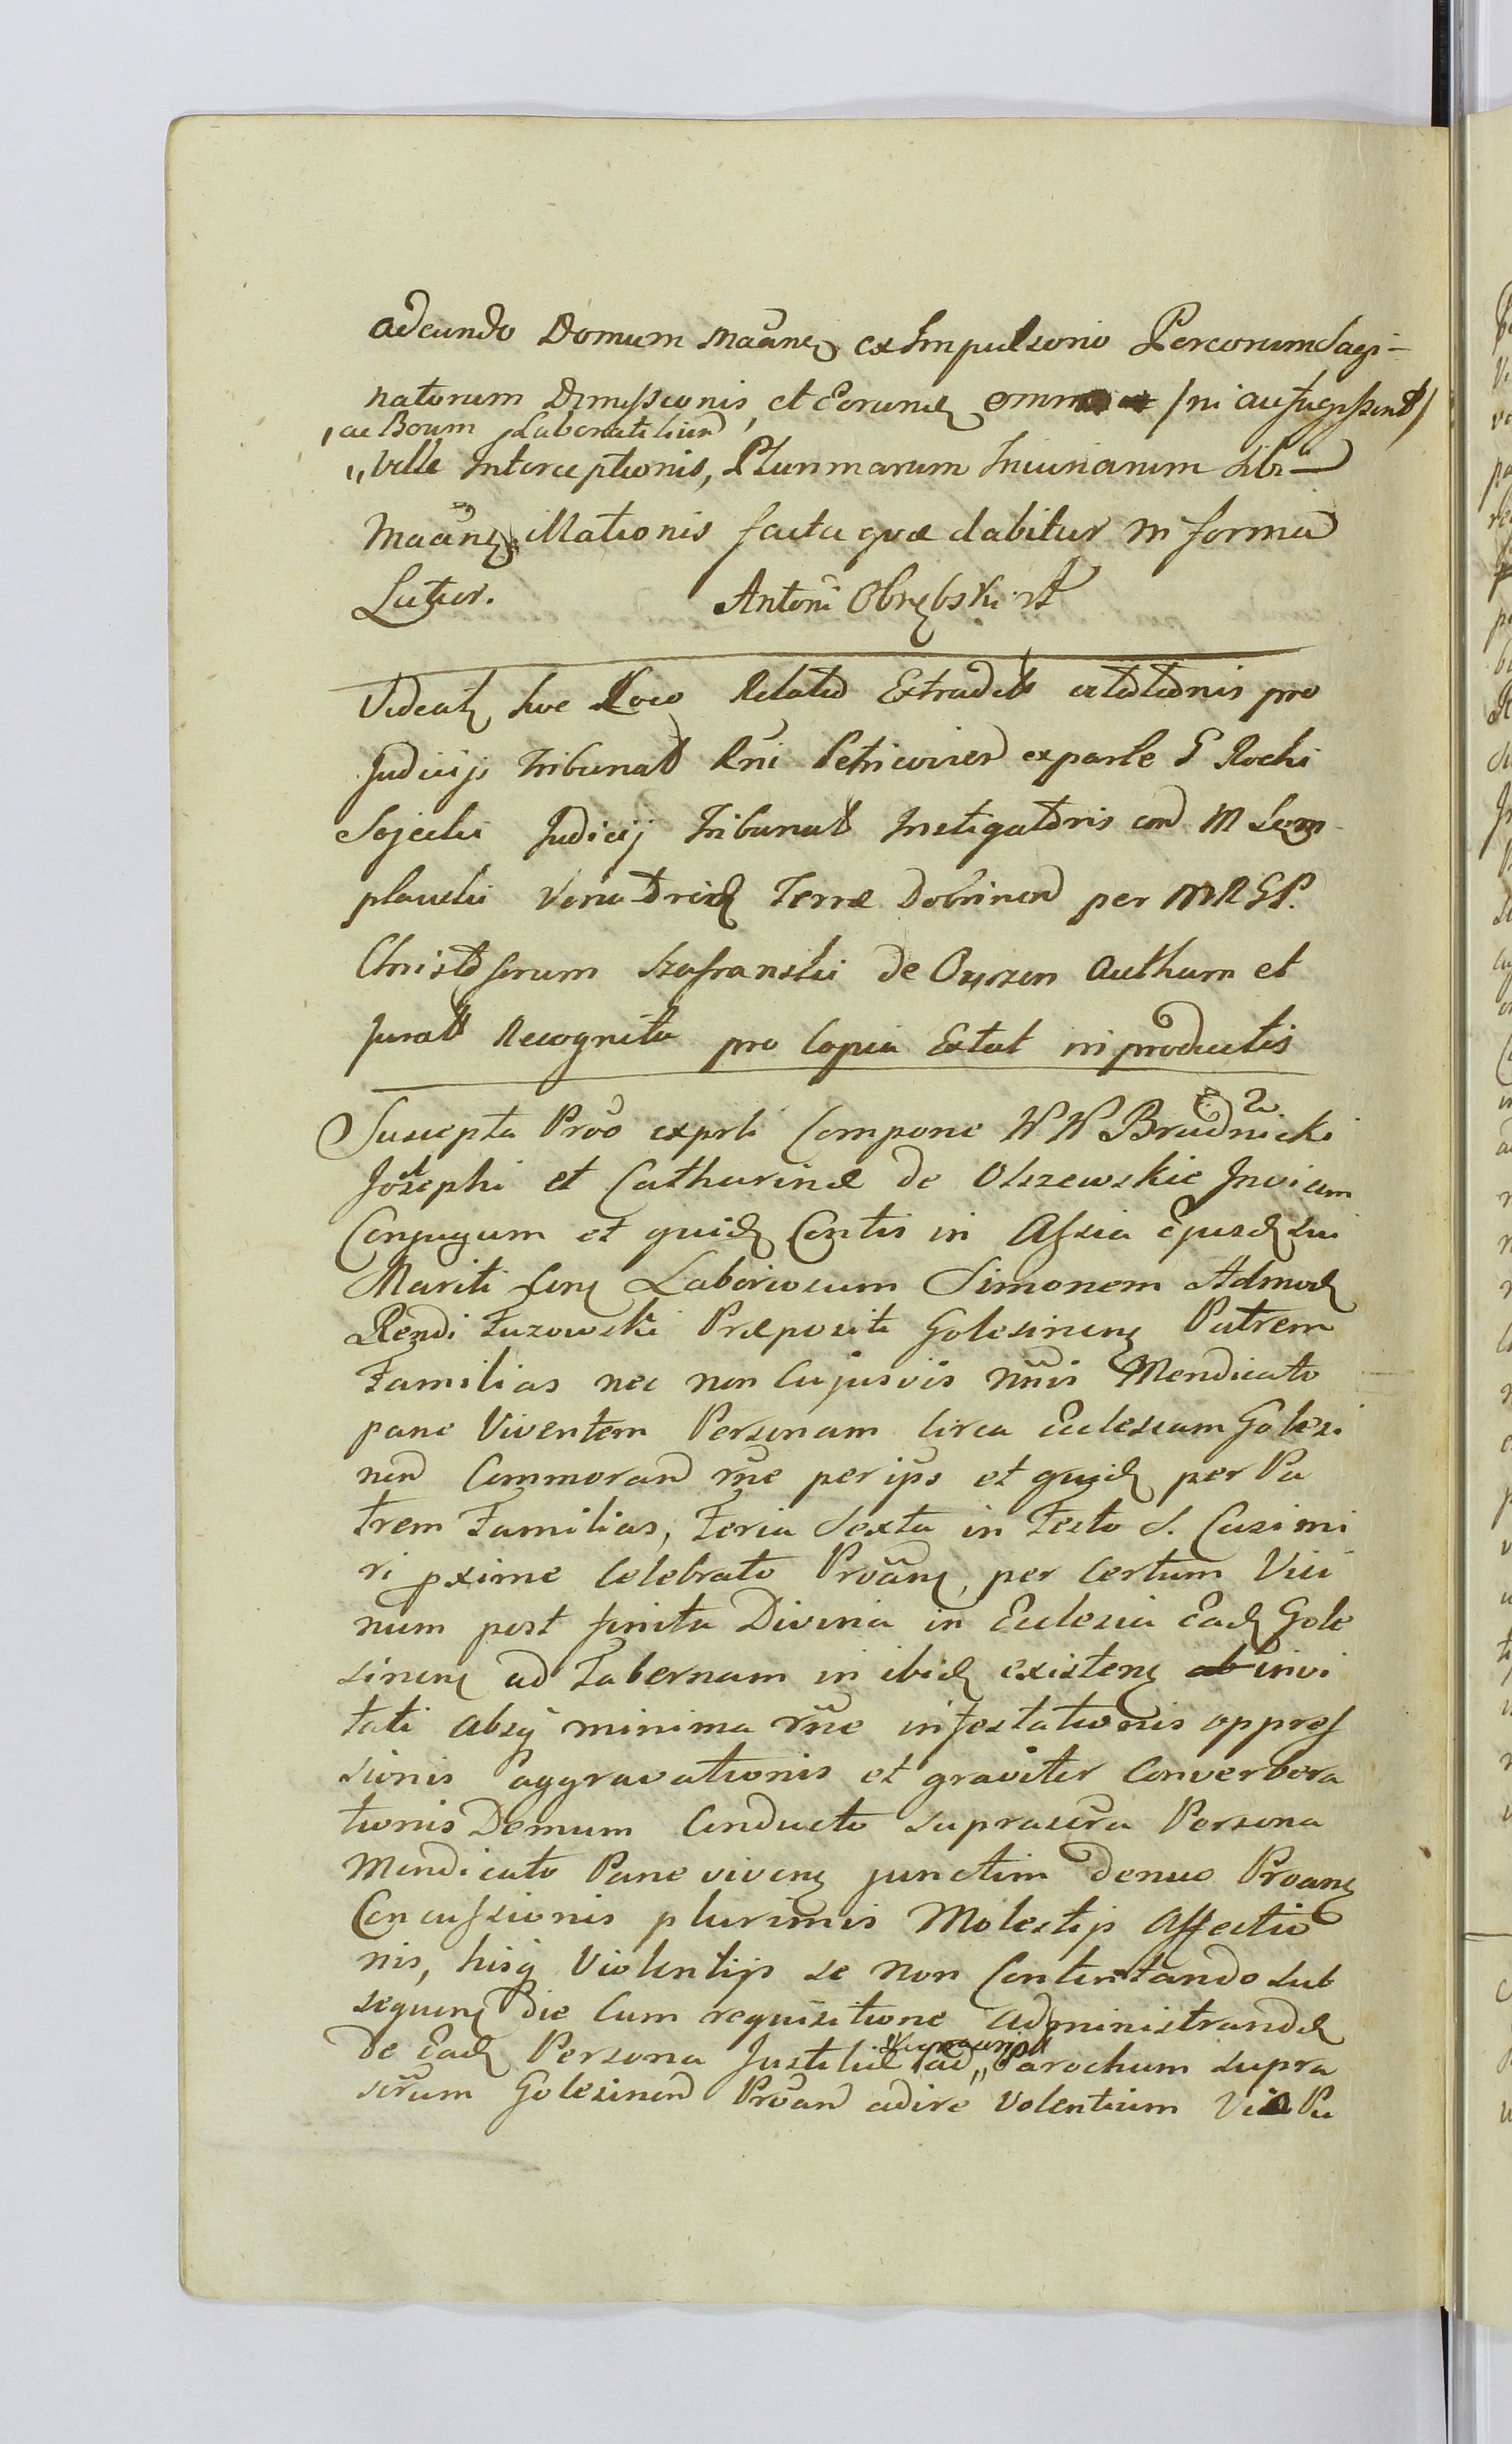 adeundo Domum Maane ex Impulsorio Porcorum Sagi-
natorum Dimissionis, et Eorund omni /ni aufugissent/
,ac Boum Laboratilium
,,Velle Interceptionis, Plurimarum Iniuriarum sibi
Maane illationis facta quæ dabitur in forma
Latior. Antoni Obrębski
Videat hoc Loco Relatio Extradit citationis pro
Judicijs Tribunal Rni Petricovien ex parte G Rochi
Sojecki Judicij Tribunal Instigatoris con M
plawski Venatoris Terræ Dobrinen per MRGP.
Christoforum Szafranski de authum et
jurat Recognita pro Copia Extat in productis
Suscepta Proō exprti Compone WW Brudnicki
Josephi et Catharinæ de Olszewskie Invicem
Conjugum et quid Contis in Assia Ejusd sui
Mariti Laboriosum Simonem Admod
Rendi Præpositi Golesinen Patrem
Familias nec non Cujusvis nnis Mendicato
pane Viventem Personam circa Ecclesiam Golesi
nen Commoran rne per ips et quid per Pa
trem Familias, Feria Sexta in Festo S. Casimi
ri pxime Celebrato Proan, per Certum Vici
num post finita Divina in Ecclesia Ead Gole
sinen ad Tabernam in ibid existen invi
tati absq minima rne infestationis oppres
sionis aggravationis et graviter Converbera
tionis Demum Conducto suprascra Persona
Mendicato Pane viven junctim denuo Proan
Concussionis plurimis Molestijs Affectio
nis, hisq Violentijs se non Contentando sub
sequen die Cum requisitione administrand
de Ead Persona Justitiæ ad ,,Parochum supra
scrum Golesinen Proan adire Volentium Via Pu